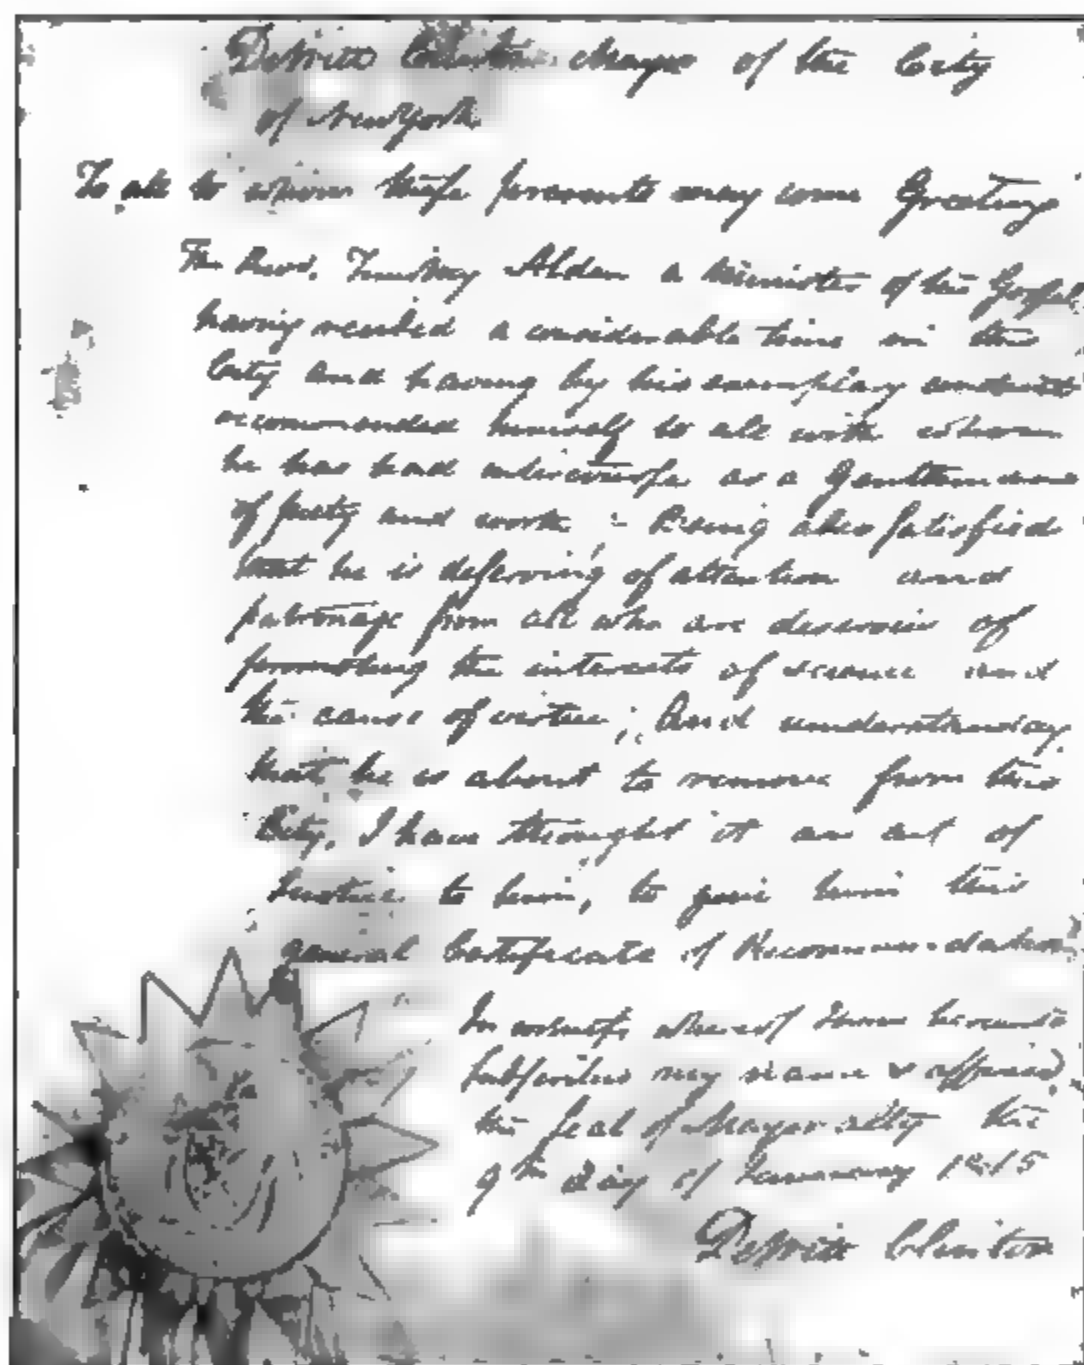 DeWitt Clinton Mayor of the City
of New York
To all to whom these presents may come Greeting
The Revd. Timothy Alden a Minister of the Gospel,
having resided a considerable time in this
City and having by his exemplary conduct
recommended himself to all with whom
he has had intercourse as a Gentleman
of piety and worth; Being also satisfied
that he is deserving of attention and
patronage from all who are desirous of
promoting the interests of science and
the cause of virtue; And understanding
that he is about to remove from this
City, I have thought it an act of
Justice to him, to give him this
general Certificate of Recommendation.
In witness whereof I have hereunto
subscribed my name & affixed
the seal of Mayoralty this
9th day of January 1815
DeWitt Clinton